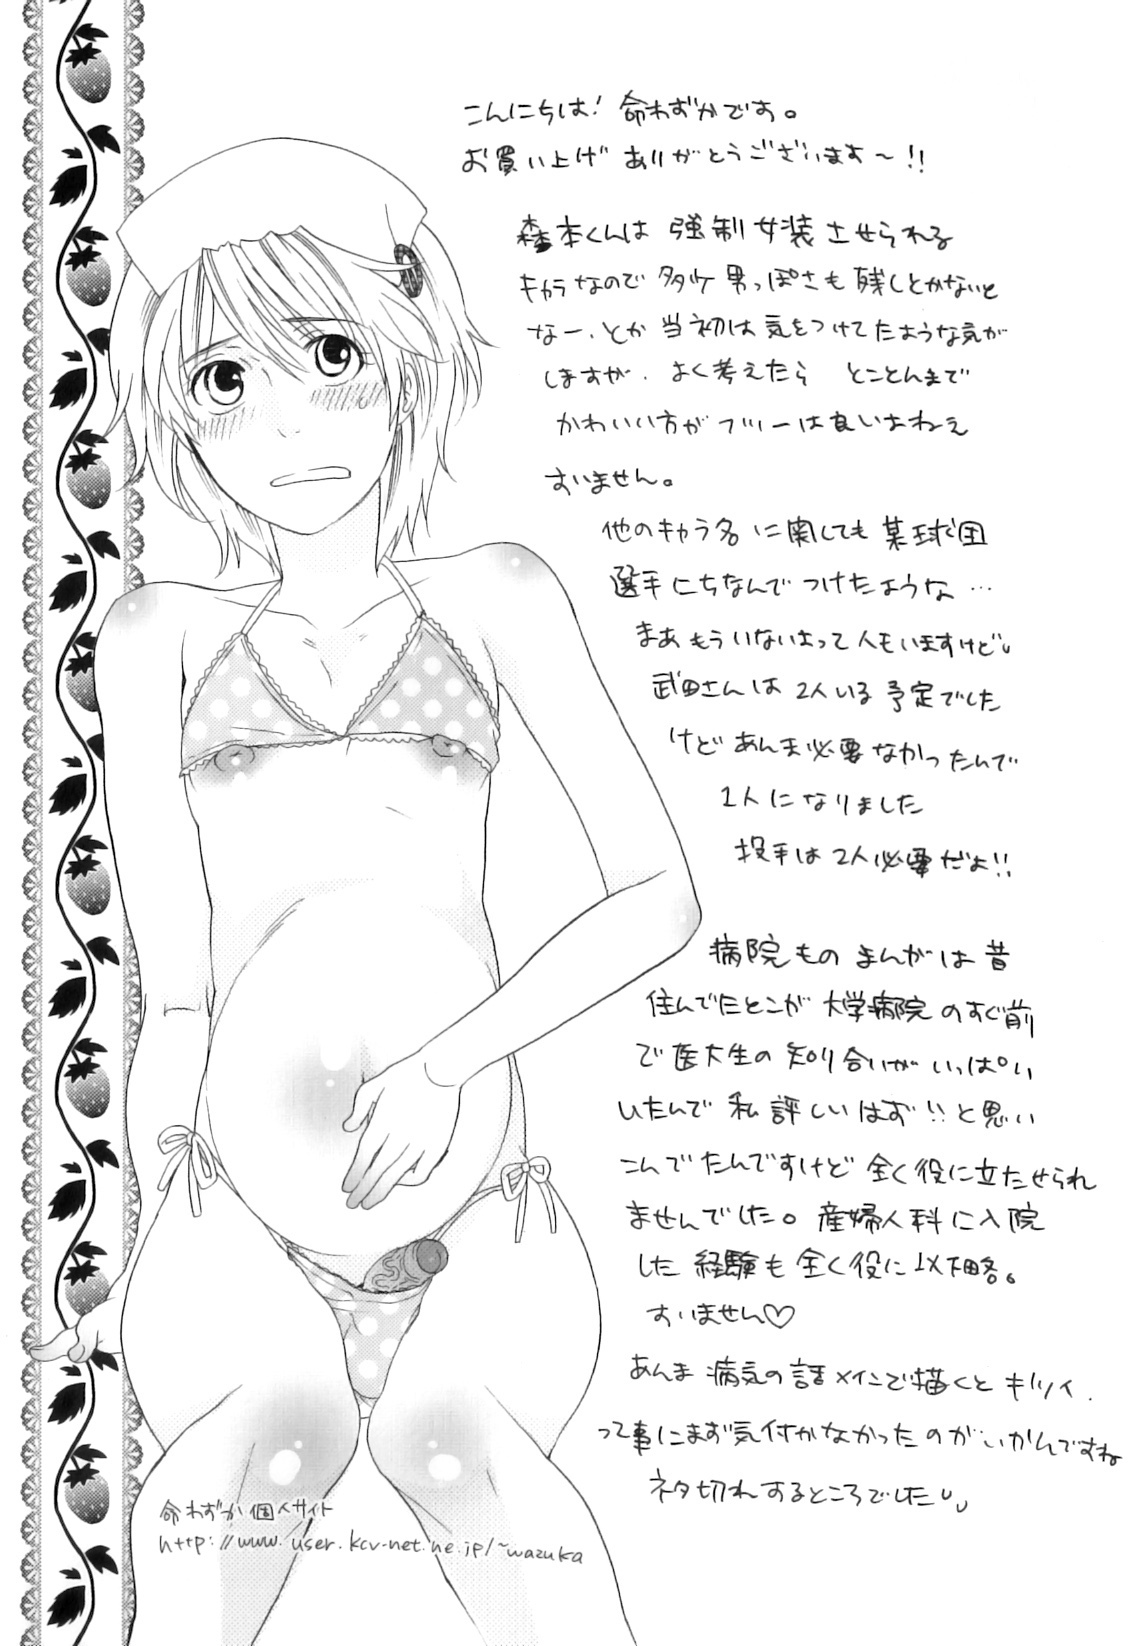 こんにちは! 命わずかです。
お買い上げ ありがとうございます〜!!
森本くんは 強制女装させられる
キャラなので 多少 男っぽさも 残しとかないと
なー、とか 当初は 気をつけてたような気が
しますが、よく考えたら とことんまで
かわいい方が フツーは良いよねえ
すいません。
他のキャラ名に関しても 某球団
選手にちなんで つけたような…
まあ もういないよって人もいますけど
武田さんは 2人いる予定でした
けど あんま必要なかったんで
1人になりました
投手は2人必要だよ!!
病院もの まんがは昔
住んでたとこが 大学病院のすぐ前
で 医大生の 知り合いが いっぱい
いたんで 私 詳しいはず!! と思い
こんでたんですけど 全く役に立たせられ
ませんでした。産婦人科に入院
した 経験も 全く役に以下略。
すいません♡
あんま 病気の話メインで描くと キツイ、
って事にまず気付かなかったのがいかんですね
ネタ切れするところでした
命わずか個人サイト
http://www.user.kcv-net.ne.jp/~wazuka